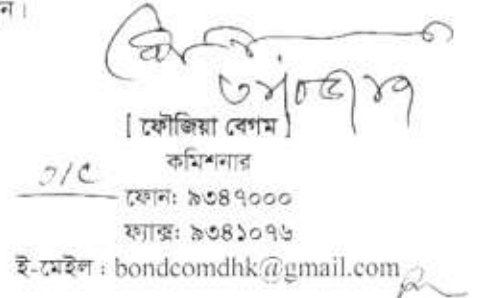 ন।
[ ফৌজিয়া বেগম ]
কমিশনার
O/C
ফোন: ৯৩৪৭০০০
ফ্যাক্স: ৯৩৪১০৭৬
ই-মেইল : bondcomdhk@gmail.com